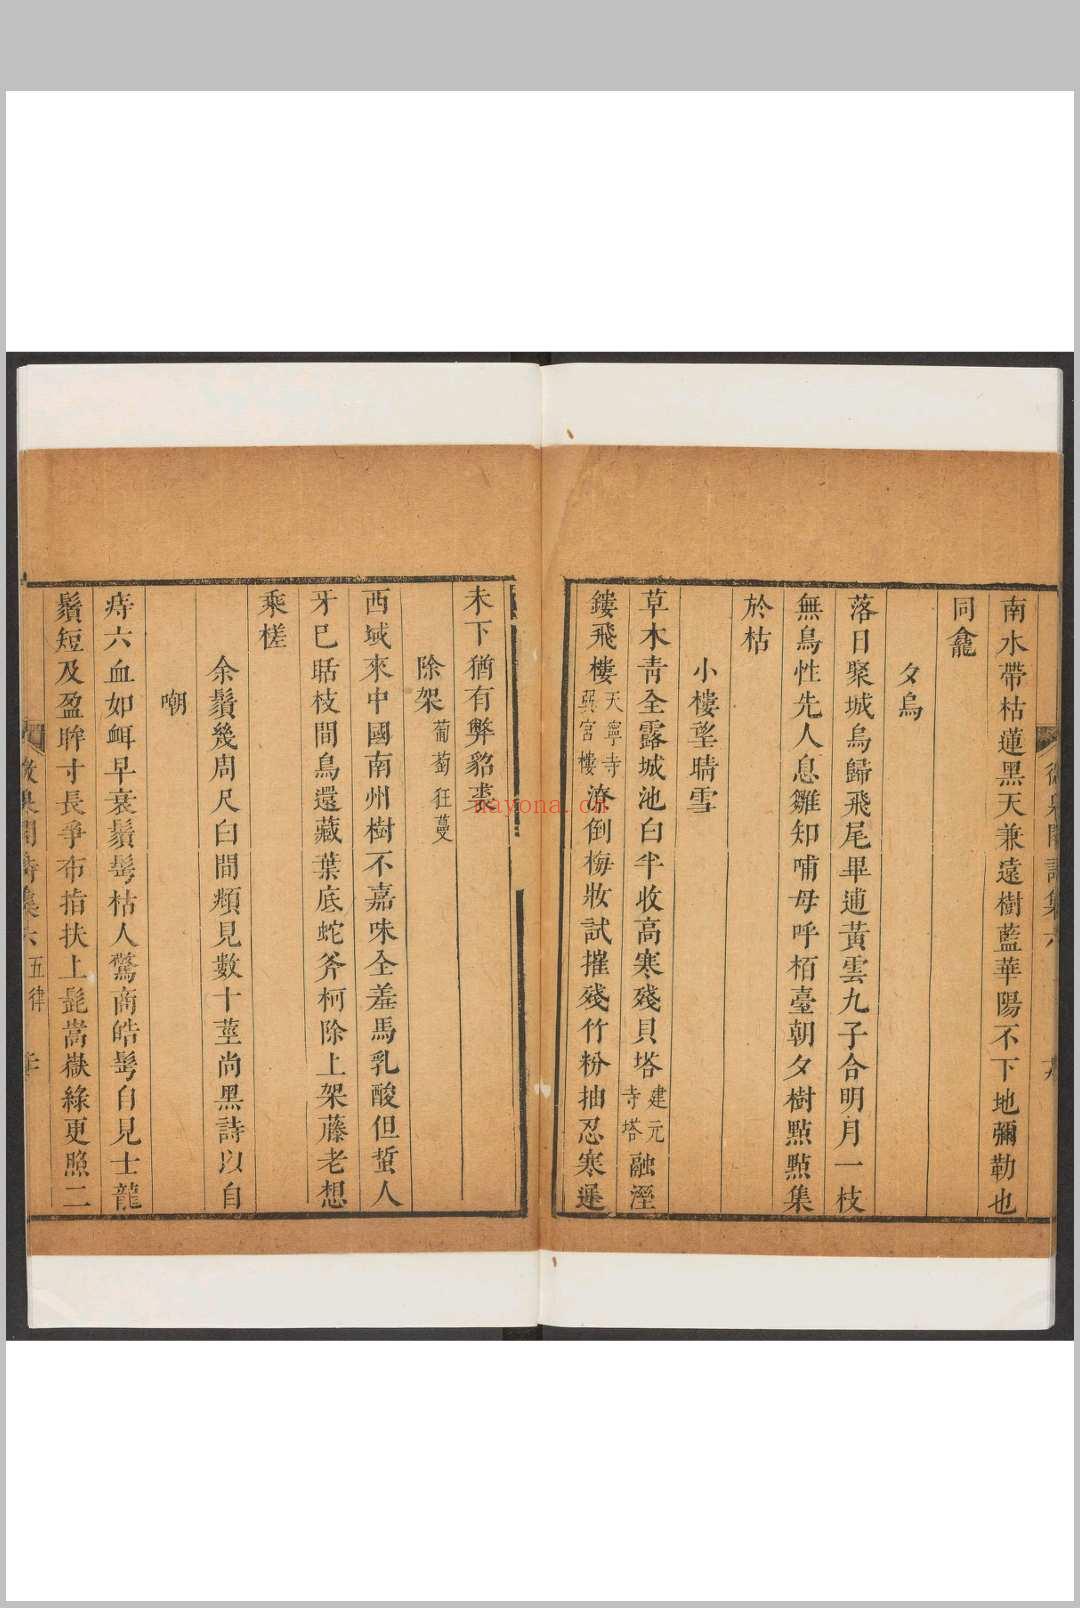 南水帶枯蓮黑天兼遠樹藍華陽不下地彌勒也
同龕
夕烏
落日聚城烏歸飛尾畢逋黃雲九子合明月一枝
無烏性先人息雛知哺母呼栢臺朝夕樹點點集
於枯
小樓望晴雪
草木靑全露城池白半收高寒殘貝塔建元寺塔融溼
鏤飛樓天寧寺巽宮樓潦倒梅妝試摧殘竹粉抽忍寒遲
未下猶有弊貂裘
除架葡萄狂蔓
西域來中國南州樹不嘉味全羞馬乳酸但蜇人
牙已聒枝間鳥還藏葉底蛇斧柯除上架藤老想
乘槎
余鬚幾周尺白間頫見數十莖尚黑詩以自
嘲
痔六血如衈早衰鬚髩枯人驚商皓髩自見士龍
鬚短及盈眸寸長爭布指扶上髭嵩嶽綠更照二
集六 五律
nayona.cn